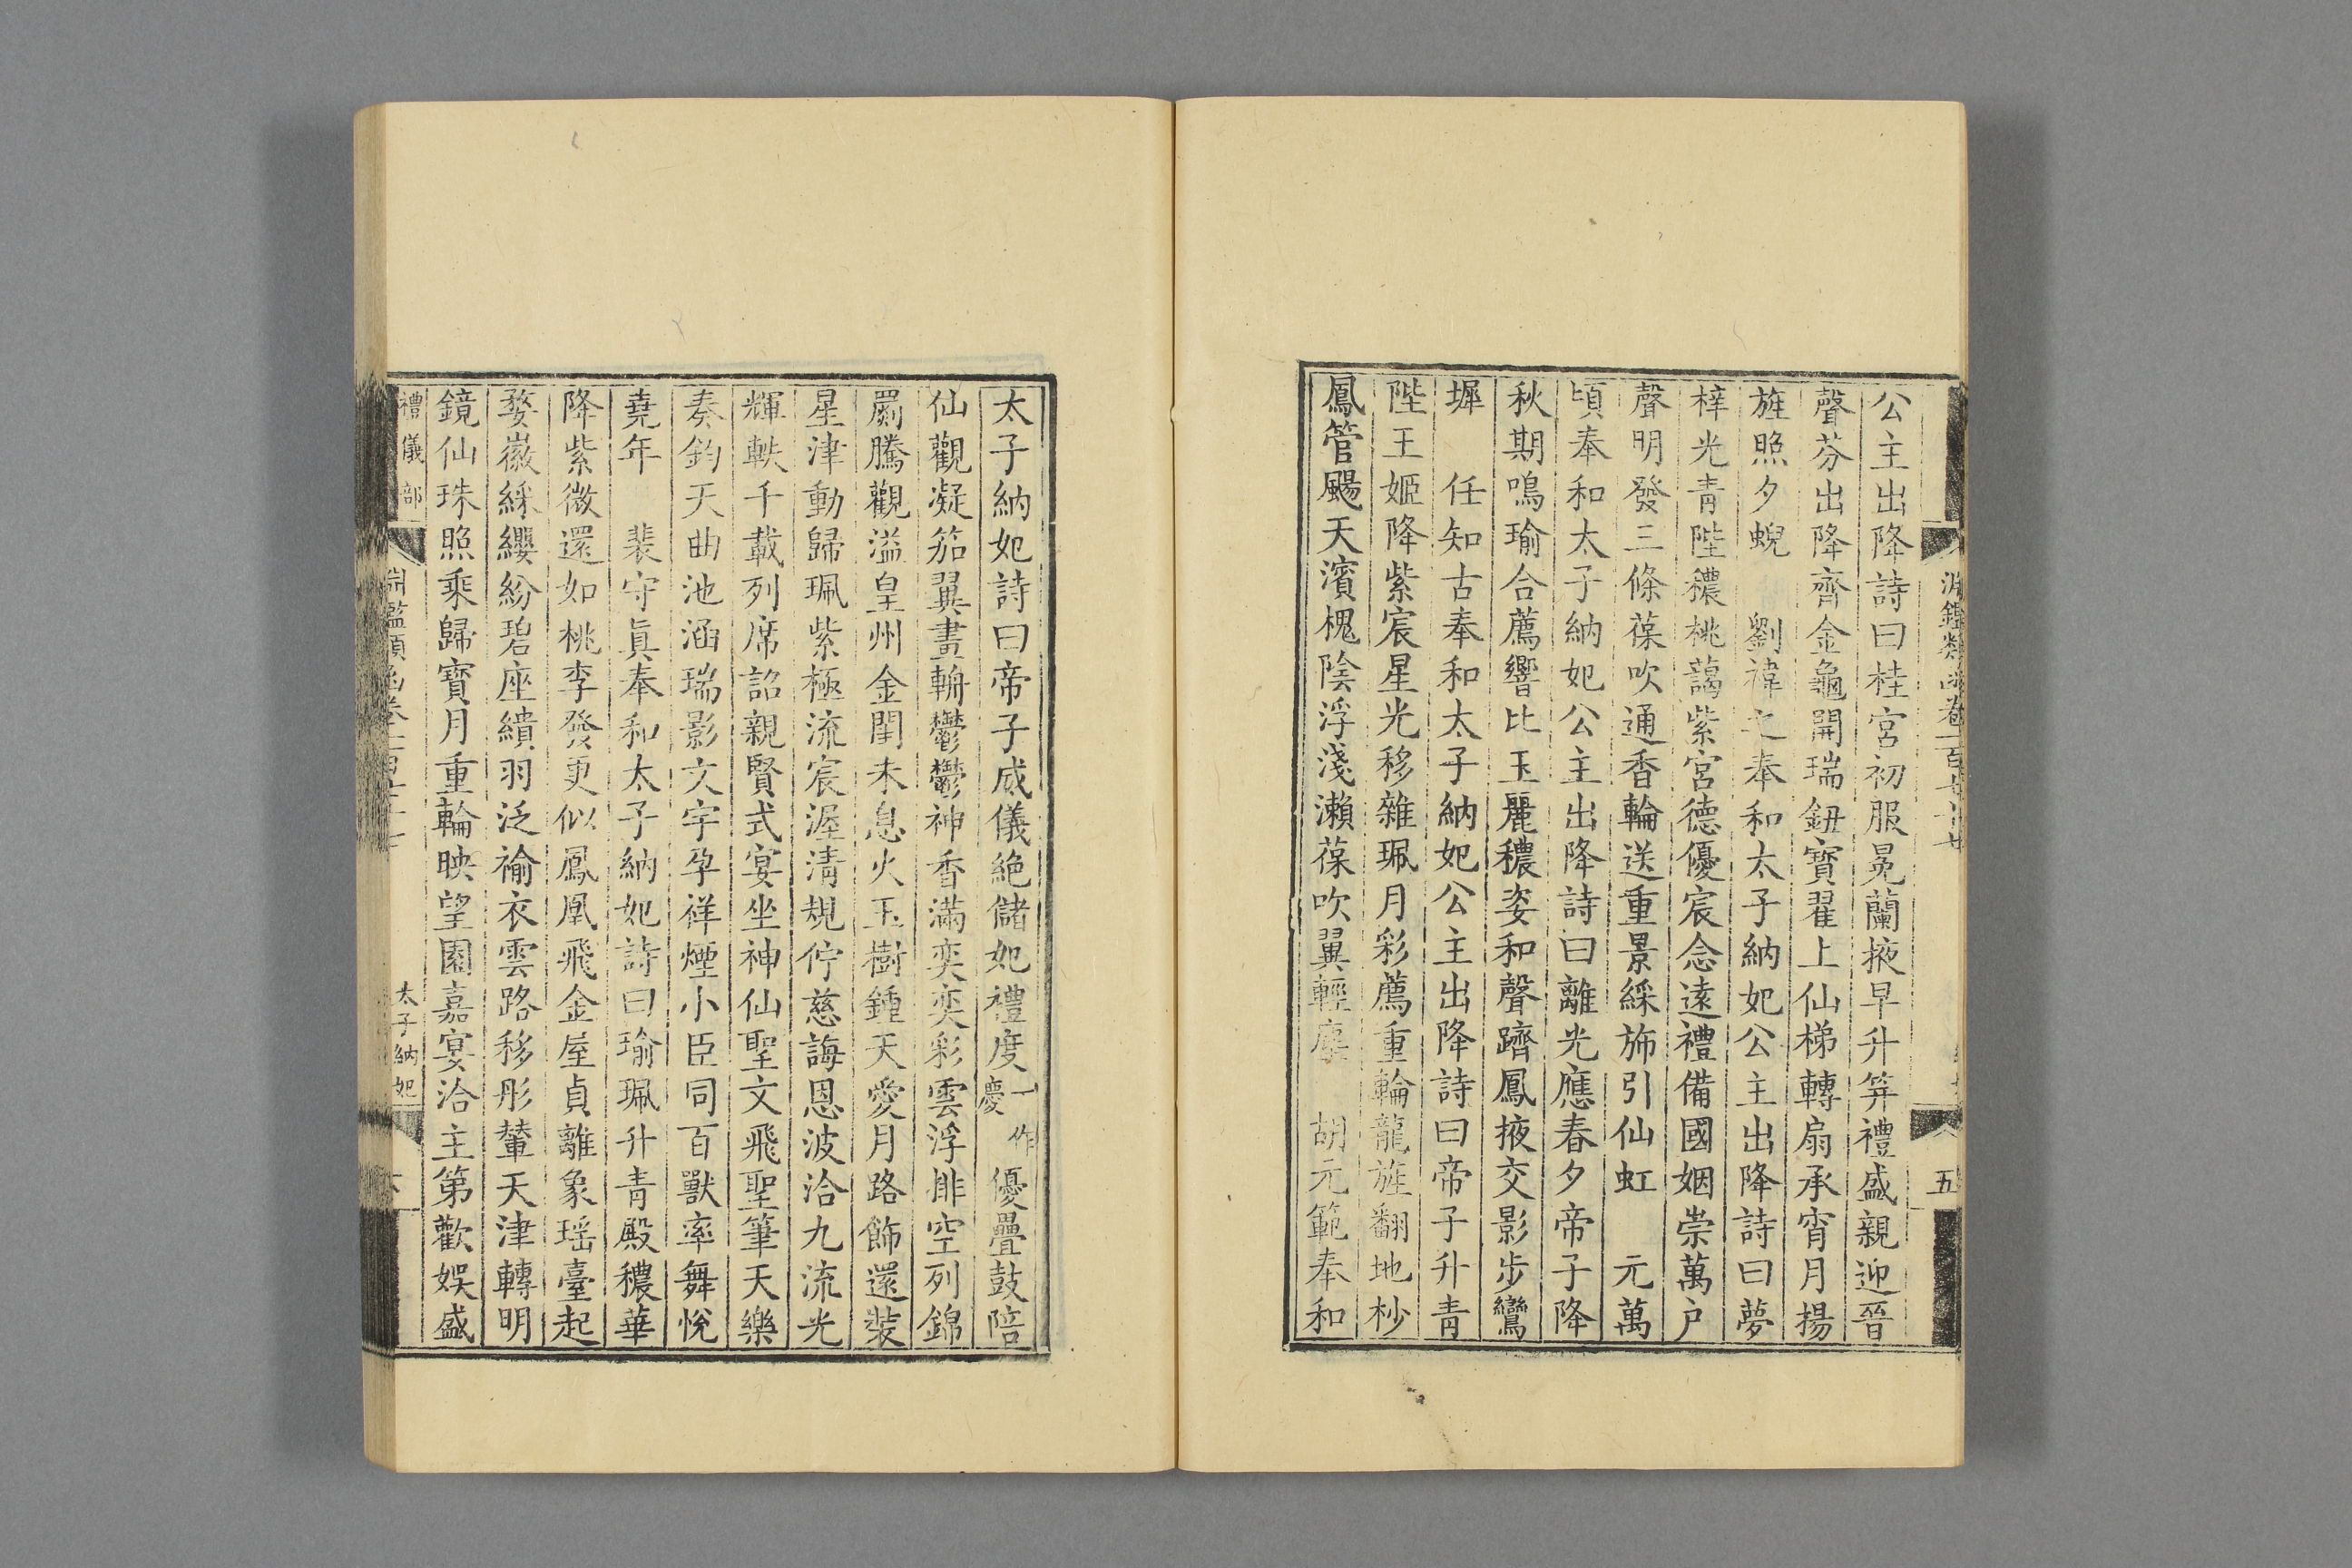 公主出降詩曰桂宮初服冕蘭掖早升笄禮盛親迎晉
聲芬出降齊金龜開瑞鈕寶翟上仙梯轉扇承宵月揚
旌照夕蜺　劉禕之奉和太子納妃公主出降詩曰夢
梓光青陛穠桃藹紫宮德優宸念遠禮備國姻崇萬户
聲明發三條葆吹通香輪送重景綵斾引仙虹　元萬
頃奉和太子納妃公主出降詩曰離光應春夕帝子降
秋期鳴瑜合薦響比玉麗穠姿和聲躋鳳掖交影步鸞
墀　任知古奉和太子納妃公主出降詩曰帝子升青
陛王姬降紫宸星光移雜珮月彩薦重輪龍旌翻地杪
鳳管颺天濱槐陰浮淺瀨葆吹翼輕塵　胡元範奉和
淵鑑類函卷一百七十七
五
太子納妃詩曰帝子威儀絶儲妃禮度一作慶優疊鼓陪
仙觀凝笳翼畫輈鬱鬱神香滿奕奕彩雲浮排空列錦
罽騰觀溢皇州金閨未息火玉樹鍾天愛月路飾還裝
星津動歸珮紫極流宸渥清規佇慈誨恩波洽九流光
輝軼千載列席詔親賢式宴坐神仙聖文飛聖筆天樂
奏鈞天曲池涵瑞影文宇孕祥煙小臣同百獸率舞悅
堯年　裴守眞奉和太子納妃詩曰瑜珮升青殿穠華
降紫微還如桃李發更似鳳凰飛金屋貞離象瑶臺起
婺徽綵纓紛碧座繢羽泛褕衣雲路移彤輦天津轉明
鏡仙珠照乘歸寶月重輪映望園嘉宴洽主第歡娛盛
禮儀部
淵鑑類函卷一百七十七
太子納妃
六